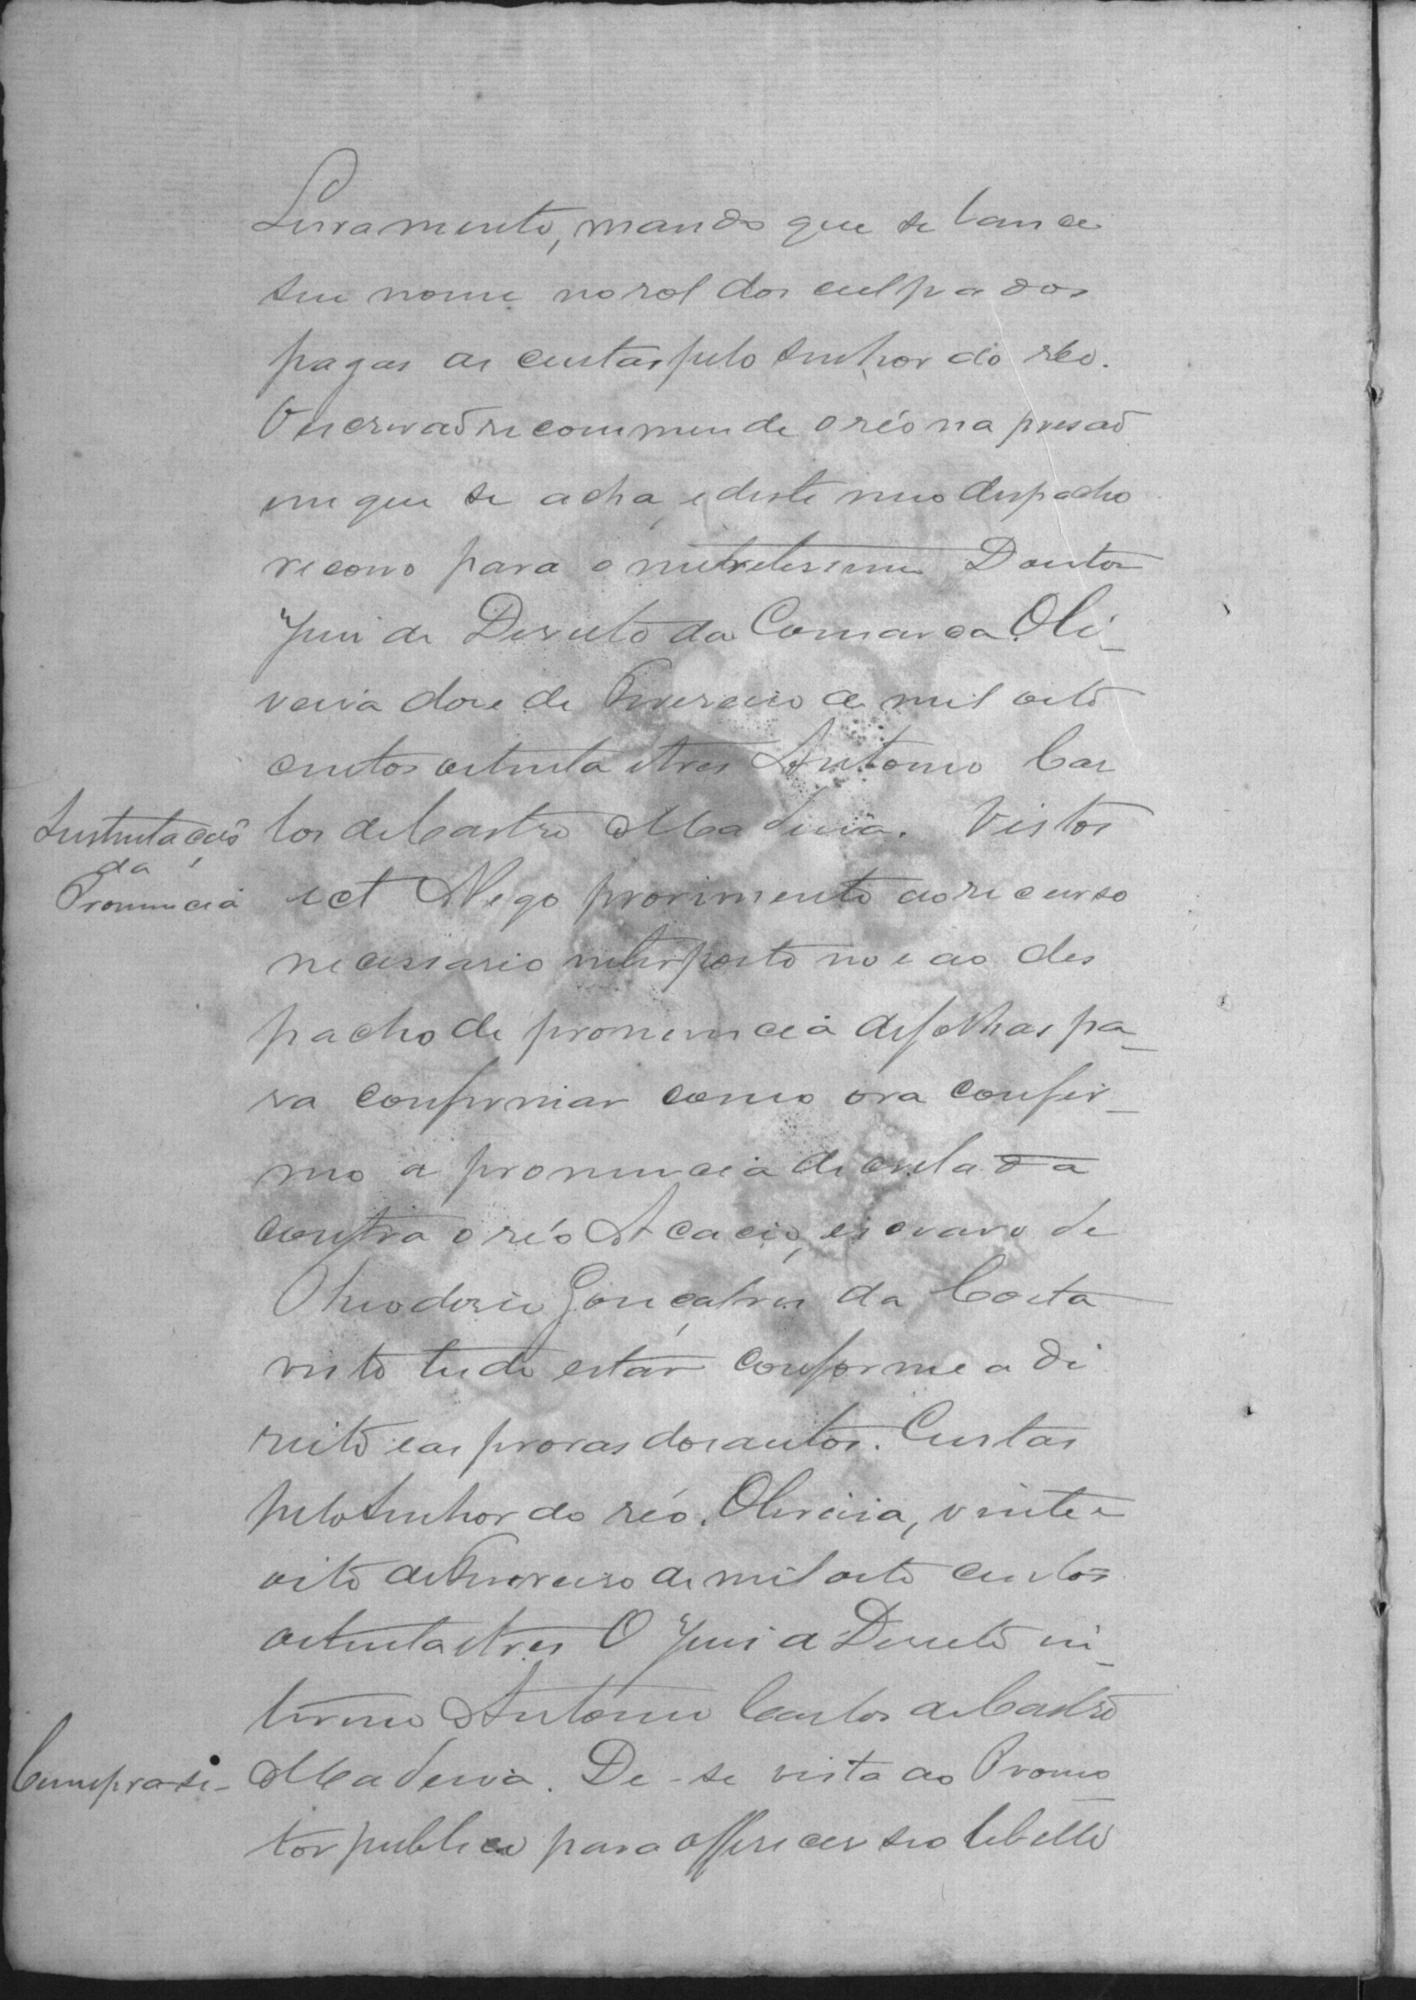 Livramento, mando que se lance
seu nome no rol dos culpados
pagas as custas pelo senhor do réo.
O escrivaõ recommende o réo na prisaõ
em que se acha, e deste meo despacho
recorro para o meretissimo Doutor
Juiz de Direito da Comarca. Oli-
veira doze de Fevereiro de mil oito
centos oitenta e tres Antonio Car
los de Castro Madeira. Vistos
Sustentação
da
Pronuncia
ect Nego provimento ao recurso
necessario interposto no e ao des
pacho de pronuncia de folhas pa-
ra confirmar como ora confir-
mo a pronuncia decretada
contra o réo Acacio, escravo de
Theodosio Gonçalves da Costa
visto tudo estar conforme a di
reito e as provas dos autos. Custas
pelo Senhor do réo. Oliveira, vinte e
oito de Fevereiro de mil oito centos
oitenta e tres O Juiz de Direito in-
terino Antonio Carlos de Castro
Cumpra-se-
Madeira. De-se vista ao Promo
tor publico para offerecer seo libello